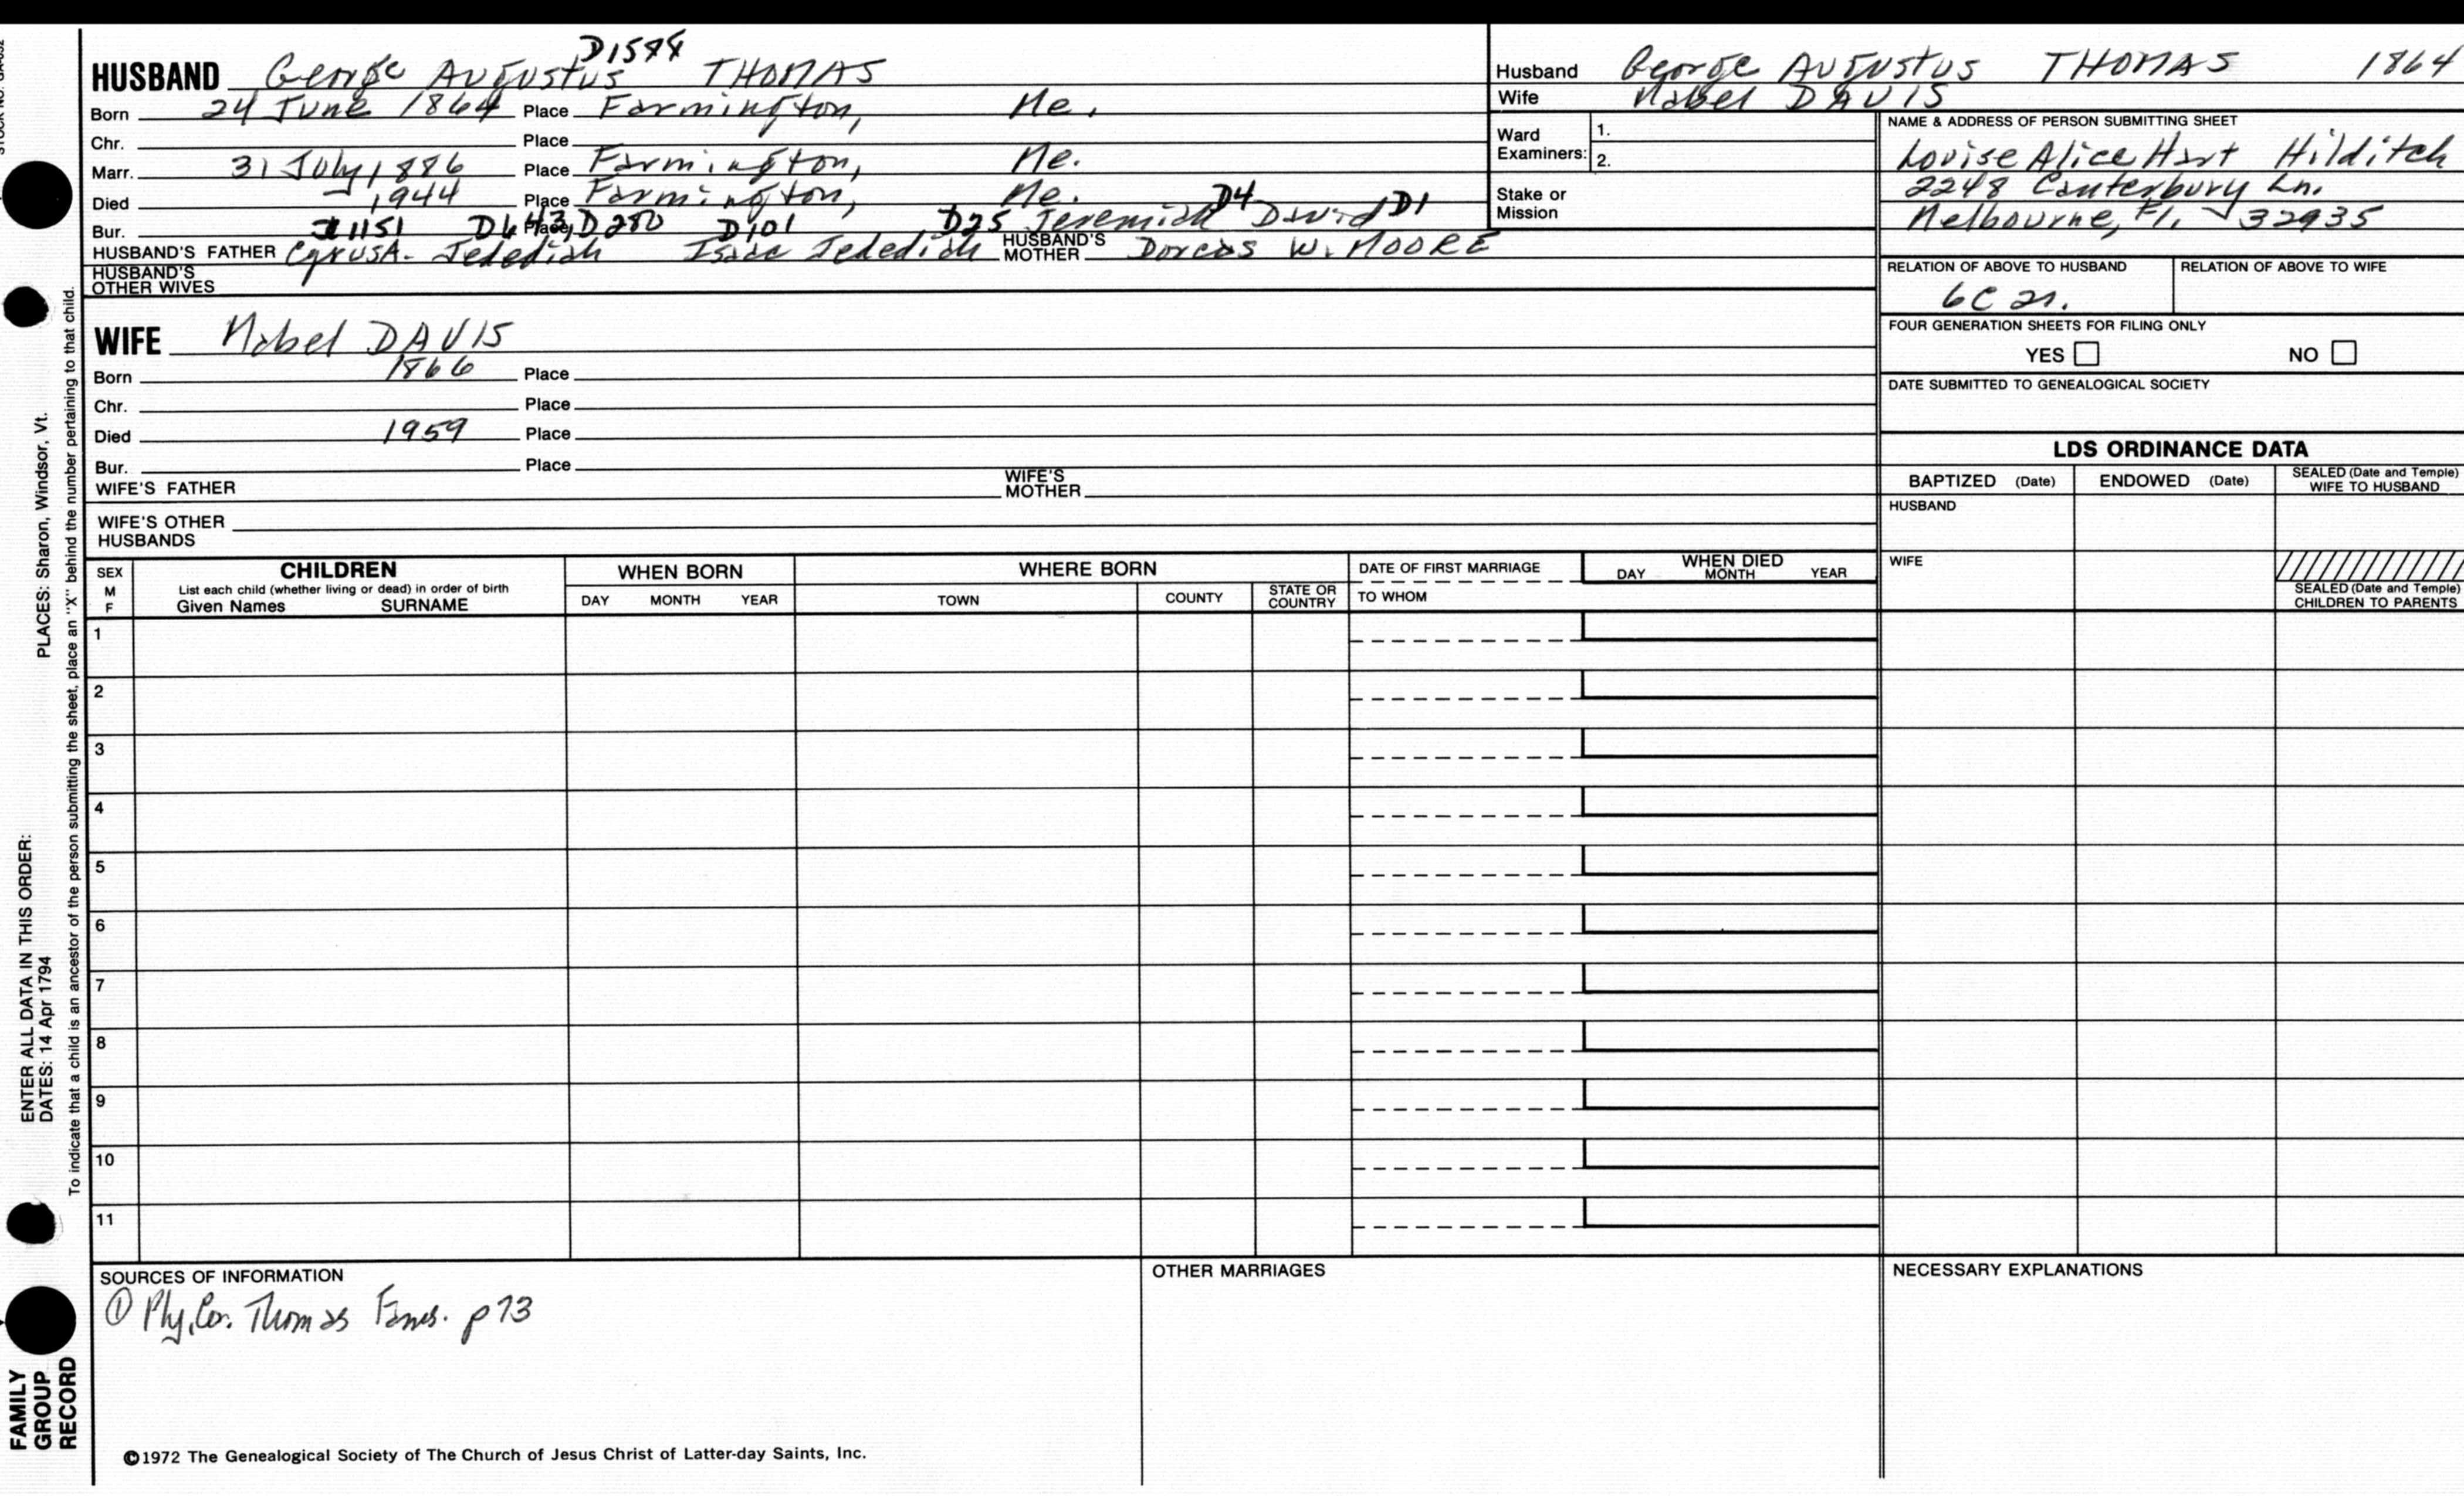 D1544
HUSBAND George Augustus THOMAS
Born 24 June 1864 Place Farmington, Me.
Chr. Place
Marr. 31 July 1886 Place Farmington, Me.
Died 1944 Place Farmington, Me.
D4 D1
Bur. 1151 D643 Place D280 D101 D25 Jeremiah David
HUSBAND'S FATHER Cyrus A. Jedediah Isaac Jedediah HUSBAND'S MOTHER Dorcas W. MOORE
HUSBAND'S OTHER WIVES
WIFE Mabel DAVIS
Born 1866 Place
Chr. Place
Died 1959 Place
Bur. Place
WIFE'S FATHER WIFE'S MOTHER
WIFE'S OTHER HUSBANDS
Husband George Augustus THOMAS 1864
Wife Mabel DAVIS
Ward Examiners: 1.
2.
Stake or Mission
NAME & ADDRESS OF PERSON SUBMITTING SHEET
Louise Alice Hart Hilditch
2248 Canterbury Ln.
Melbourne, Fl. 32935
RELATION OF ABOVE TO HUSBAND RELATION OF ABOVE TO WIFE
6C
FOUR GENERATION SHEETS FOR FILING ONLY
YES NO
DATE SUBMITTED TO GENEALOGICAL SOCIETY
LDS ORDINANCE DATA
BAPTIZED (Date) ENDOWED (Date) SEALED (Date and Temple) WIFE TO HUSBAND
HUSBAND
WIFE
SEALED (Date and Temple) CHILDREN TO PARENTS
SEX M F
CHILDREN
List each child (whether living or dead) in order of birth
Given Names SURNAME
WHEN BORN
DAY MONTH YEAR
WHERE BORN
TOWN COUNTY STATE OR COUNTRY
DATE OF FIRST MARRIAGE
TO WHOM
WHEN DIED
DAY MONTH YEAR
1
2
3
4
5
6
7
8
9
10
11
SOURCES OF INFORMATION
① Ply. Co. Thomas Fams. p 73
OTHER MARRIAGES
NECESSARY EXPLANATIONS
©1972 The Genealogical Society of The Church of Jesus Christ of Latter-day Saints, Inc.
FAMILY GROUP RECORD
ENTER ALL DATA IN THIS ORDER:
DATES: 14 Apr 1794 PLACES: Sharon, Windsor, Vt.
To indicate that a child is an ancestor of the person submitting the sheet, place an "X" behind the number pertaining to that child.